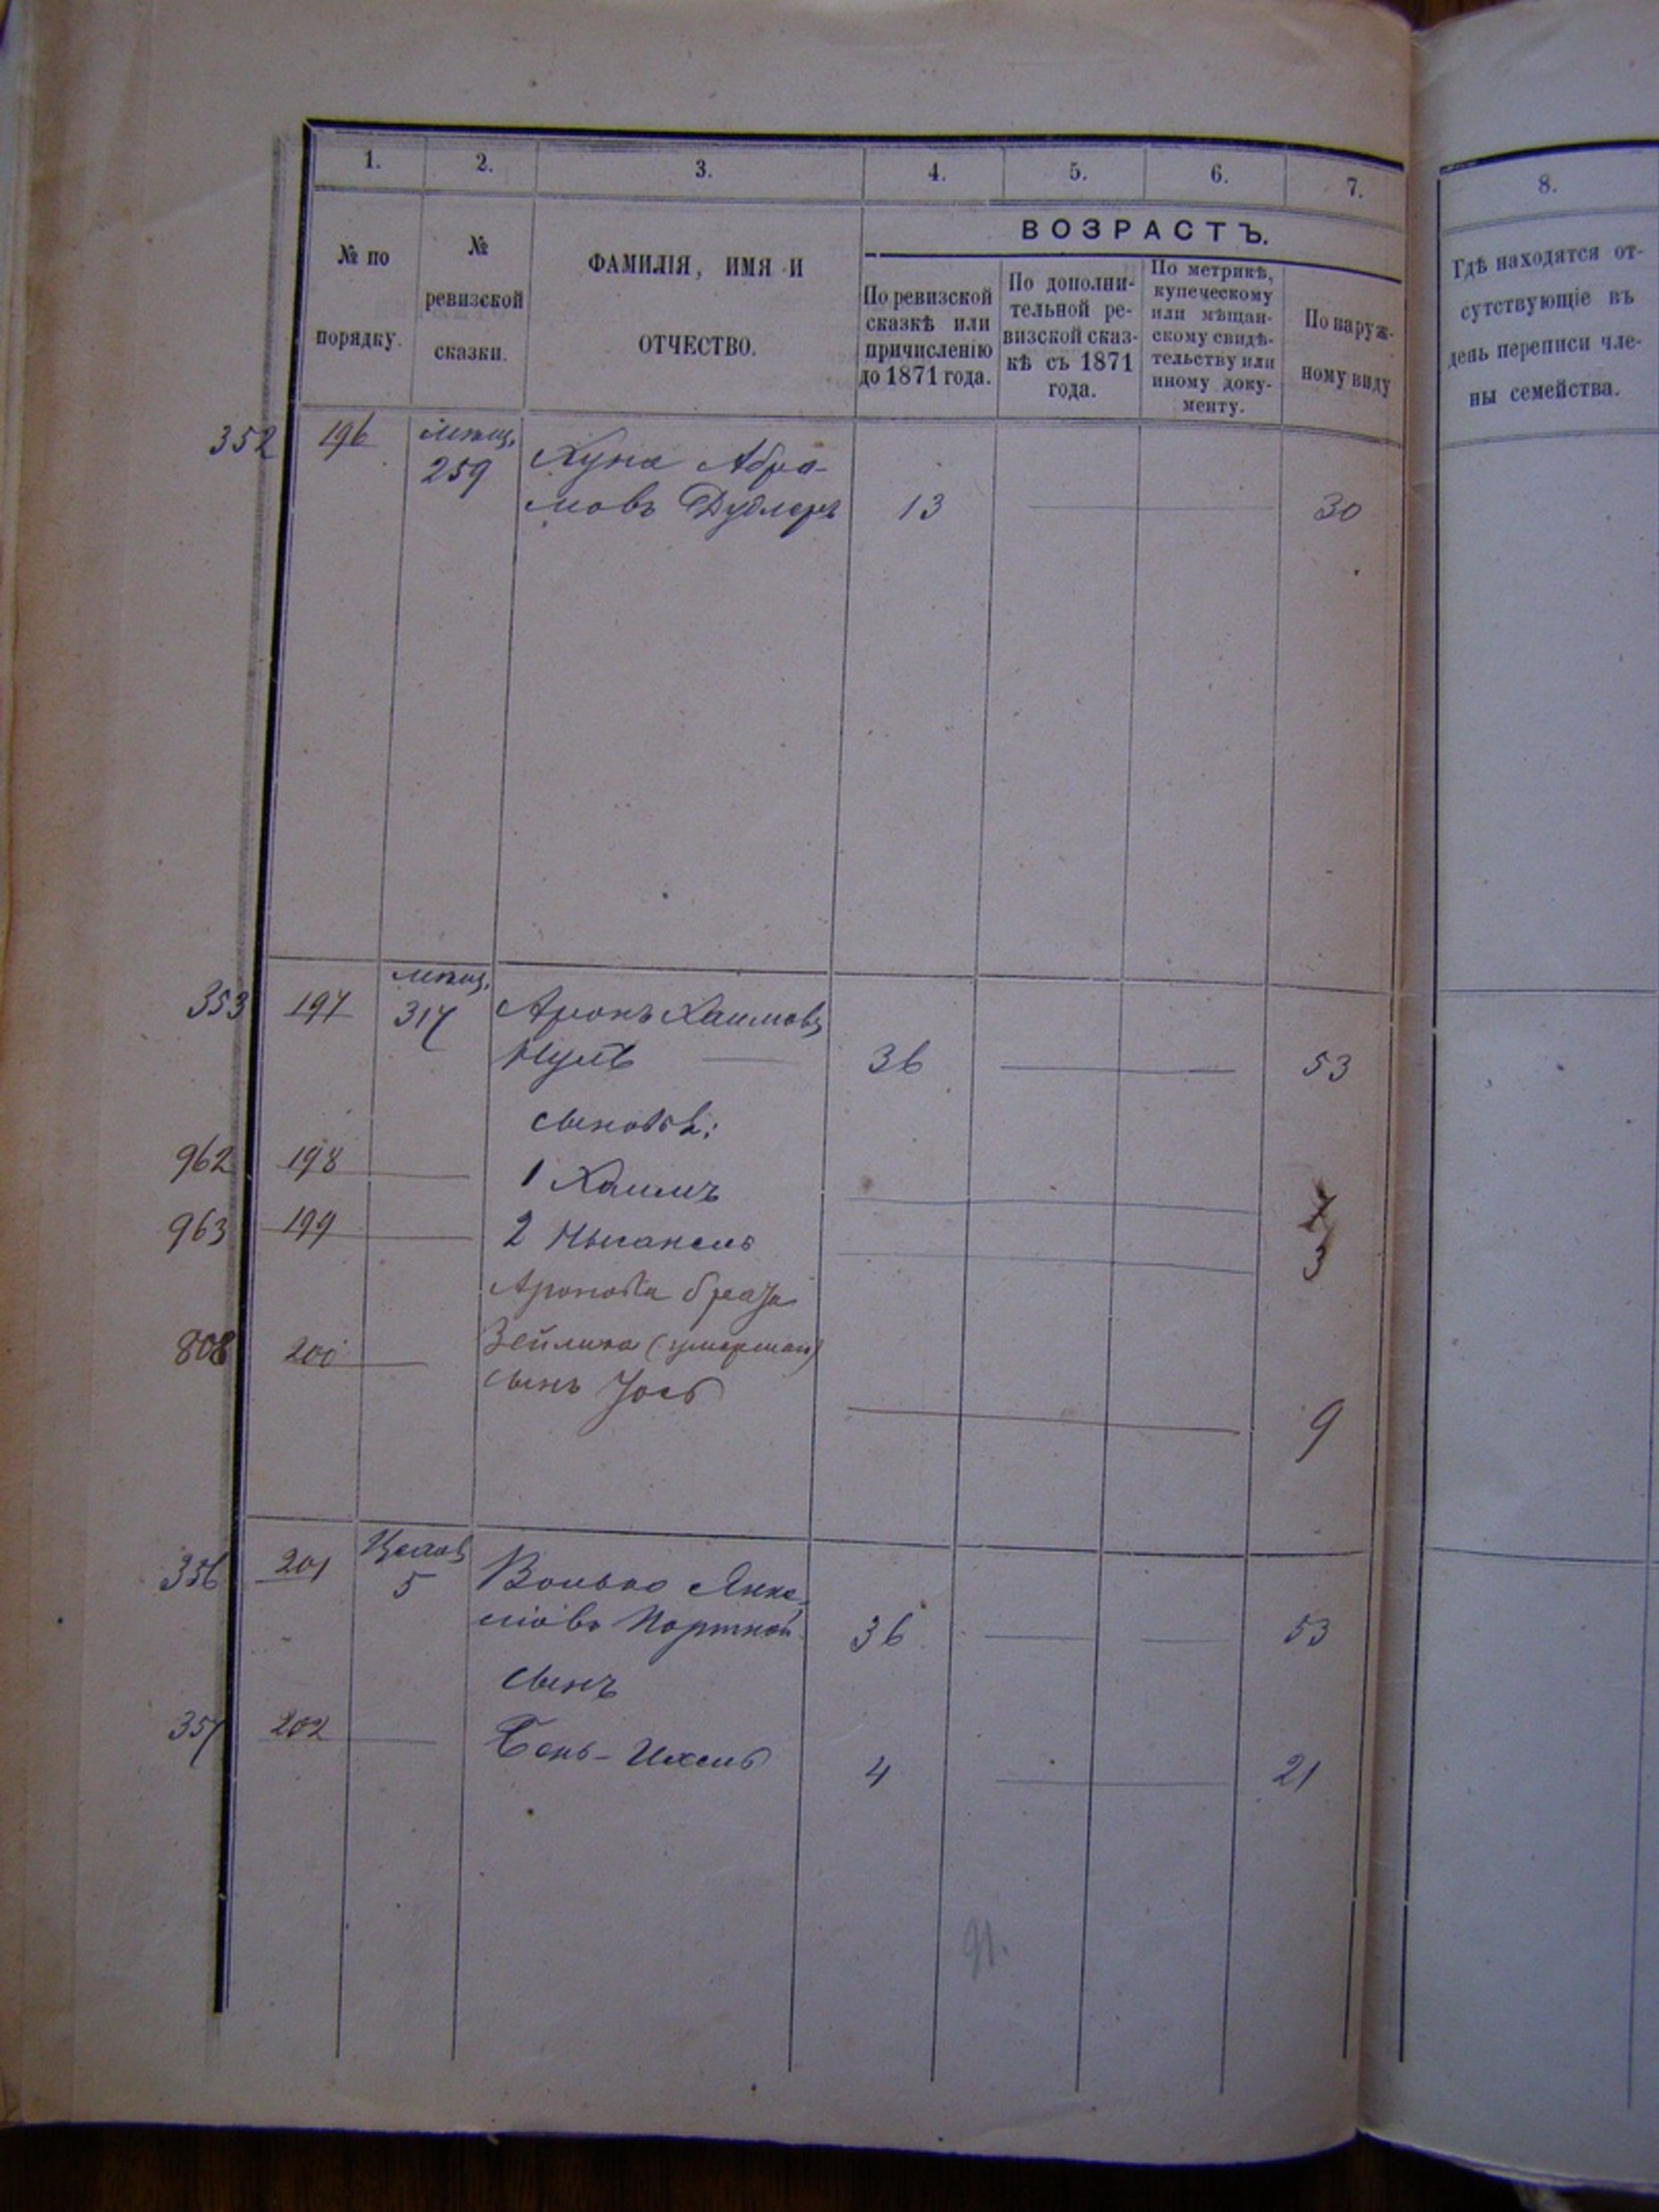 1. 2. 3. 4. 5. 6. 7. 8.
№ по порядку.
№ ревизской сказки.
ФАМИЛІЯ, ИМЯ И
ОТЧЕСТВО.
ВОЗРАСТЪ.
По ревизской
сказкѣ или
причисленію
до 1871 года.
По дополни-
тельной ре-
визской сказ-
кѣ съ 1871
года.
По метрикѣ,
купеческому
или мѣщан-
скому свидѣ-
тельству или
иному доку-
менту.
По наруж-
ному виду
Гдѣ находятся от-
сутствующіе въ
день переписи чле-
ны семейства.
352 196 мѣщ. Хуна Абра-
259 мовъ Дудлеръ 13 30
мѣщ.
353 197 317 Аронъ Хаимовъ
Нуль 36 53
сыновья:
962 198 1 Хаимъ 7
963 199 2 Нысанель 3
Аронова брата
808 200 Зейлика (умершаго)
сынъ Іось 9
356 201 5 Волько Янке-
ліовъ Портной 36 53
сынъ
357 202 Бень-Ихель 4 21
91.